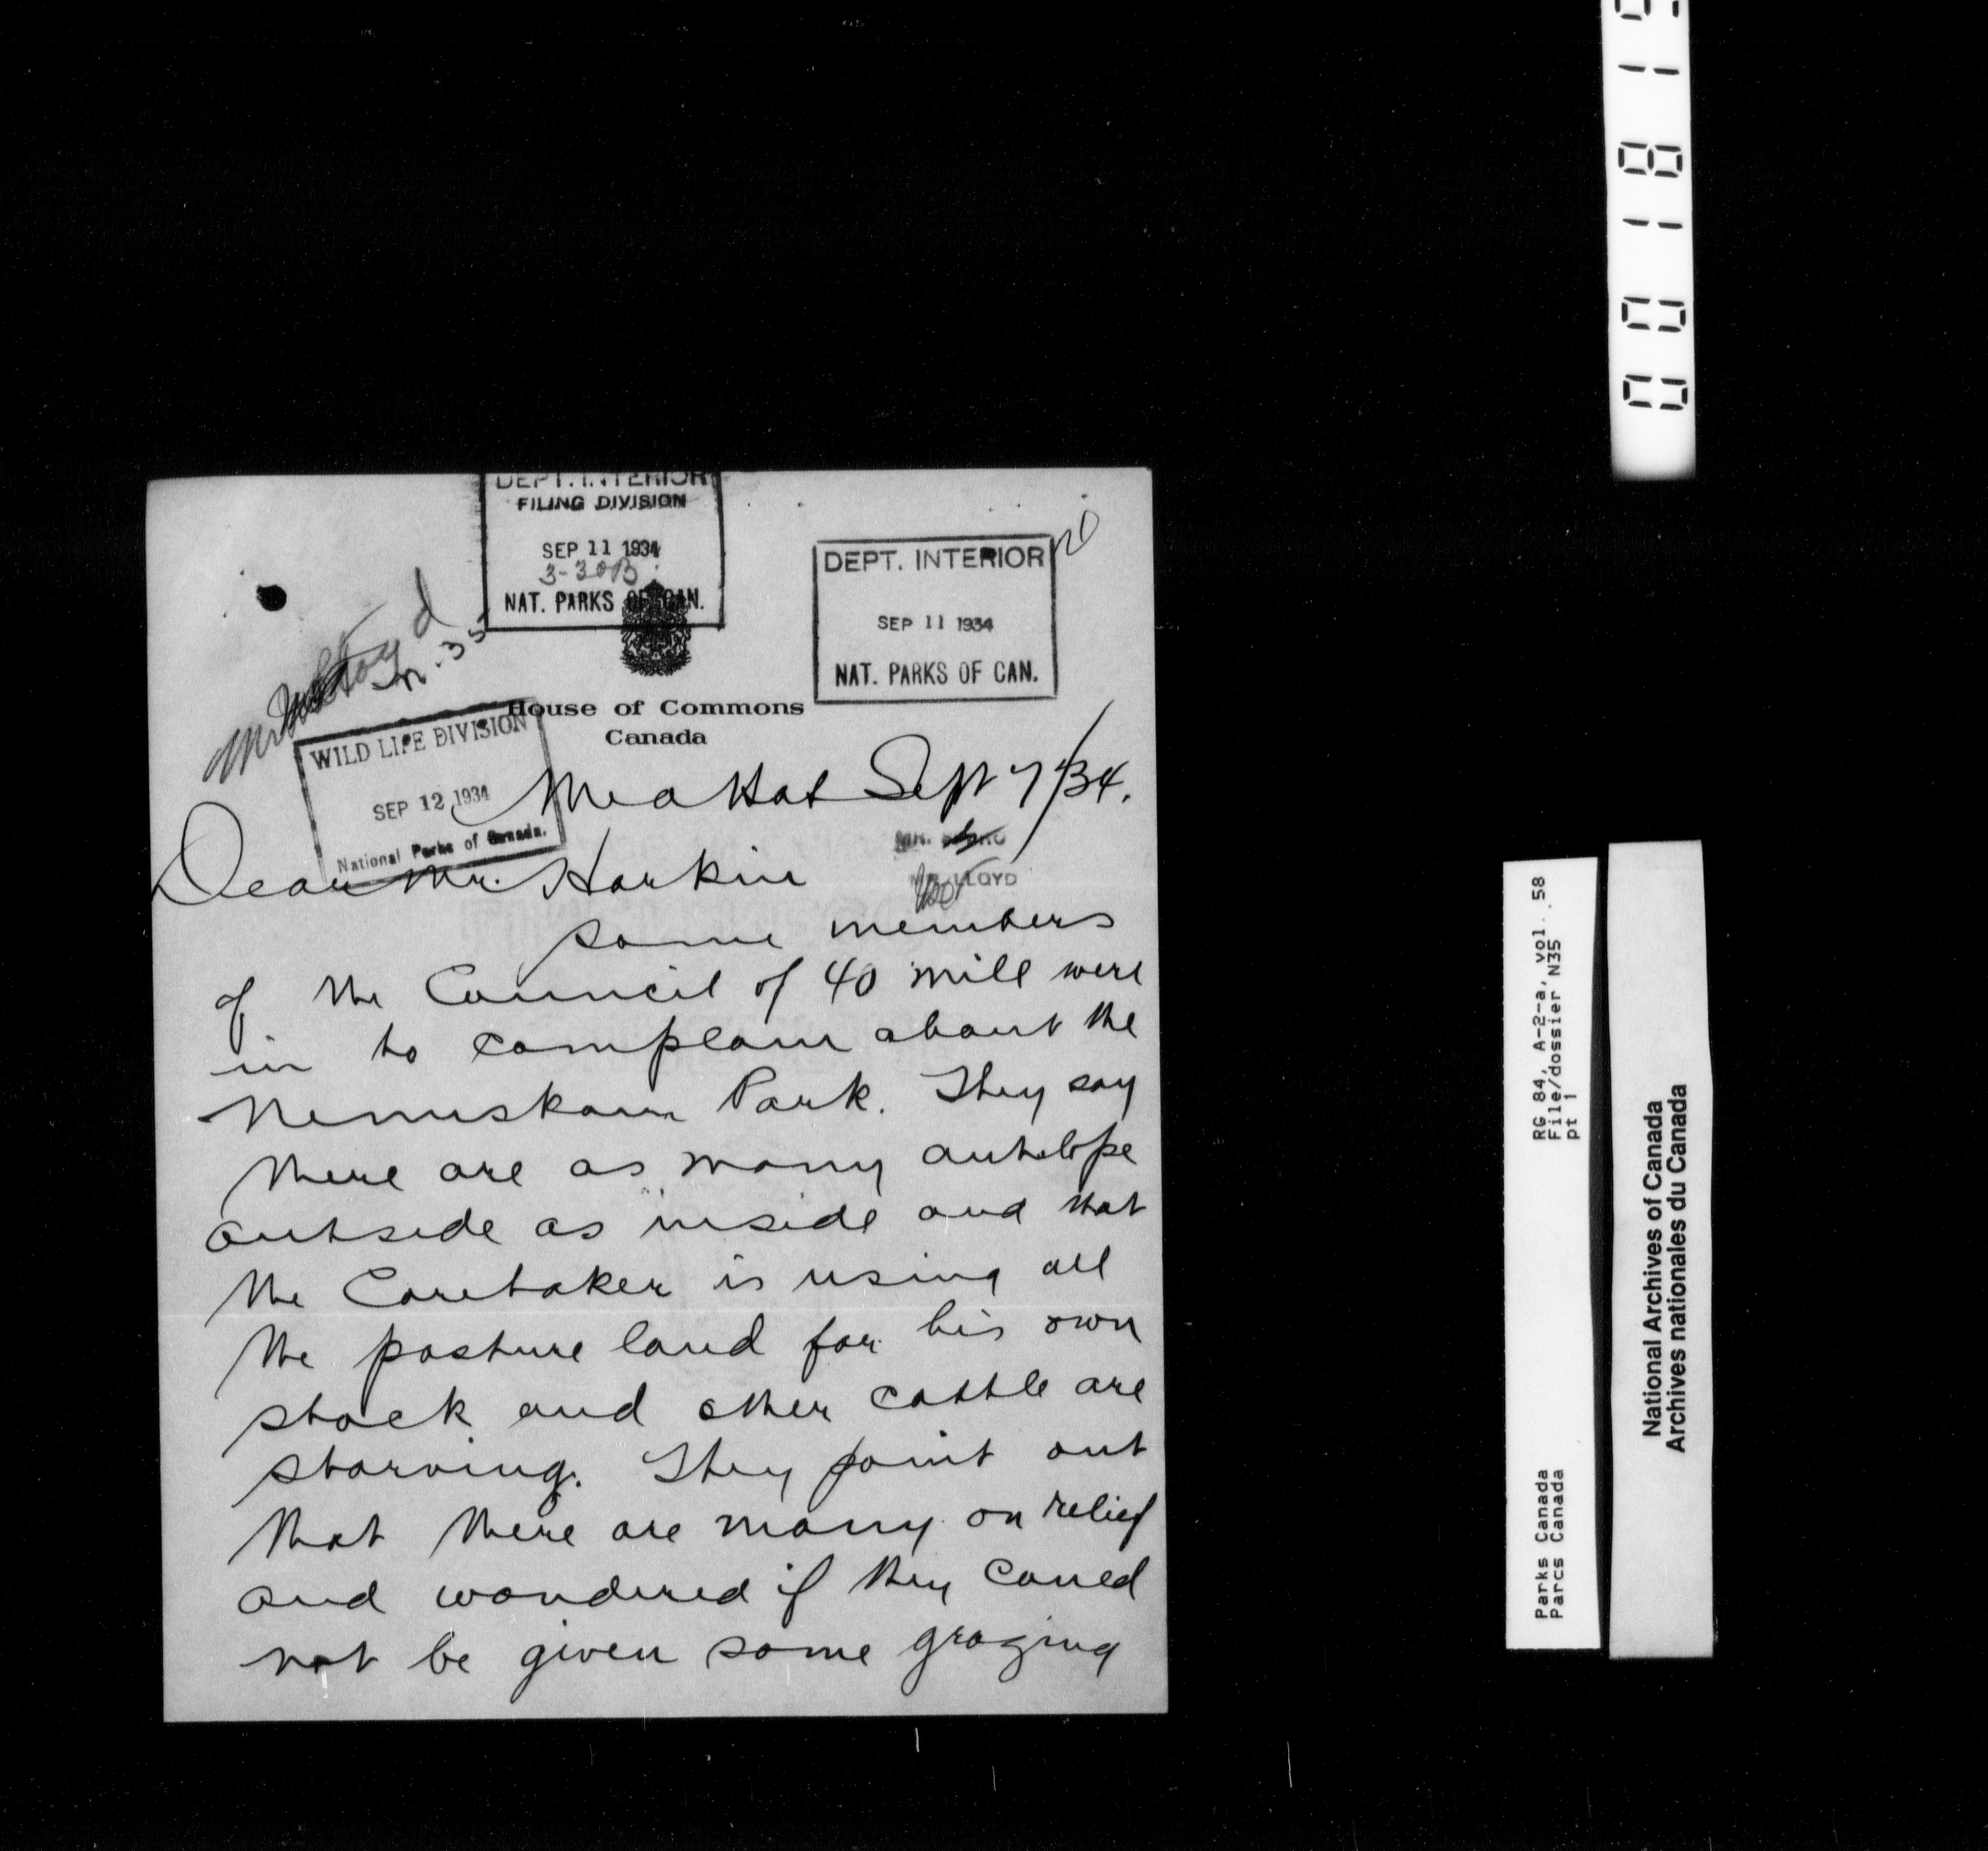 DEPT. INTERIOR
FILING DIVISION
SEP 11 1934
3-30B
NAT. PARKS OF CAN.
DEPT. INTERIOR
SEP 11 1934
NAT. PARKS OF CAN.
Lloyd
N.35
House of Commons
Canada
WILD LIFE DIVISION
SEP 12 1934
National Parks of Canada.
Med Hat Sept 7/34.
MR. LLOYD
Dear Mr. Harkin
some members
of the Council of 40 mill were
in to complain about the
Nemiskam Park. They say
there are as many antelope
outside as inside and that
the Caretaker is using all
the pasture land for his own
stock and other cattle are
starving. They point out
that there are many on relief
and wondered if they could
not be given some grazing
RG 84, A-2-a, vol. 58
File/dossier N35
pt 1
Parks Canada
Parcs Canada
National Archives of Canada
Archives nationales du Canada